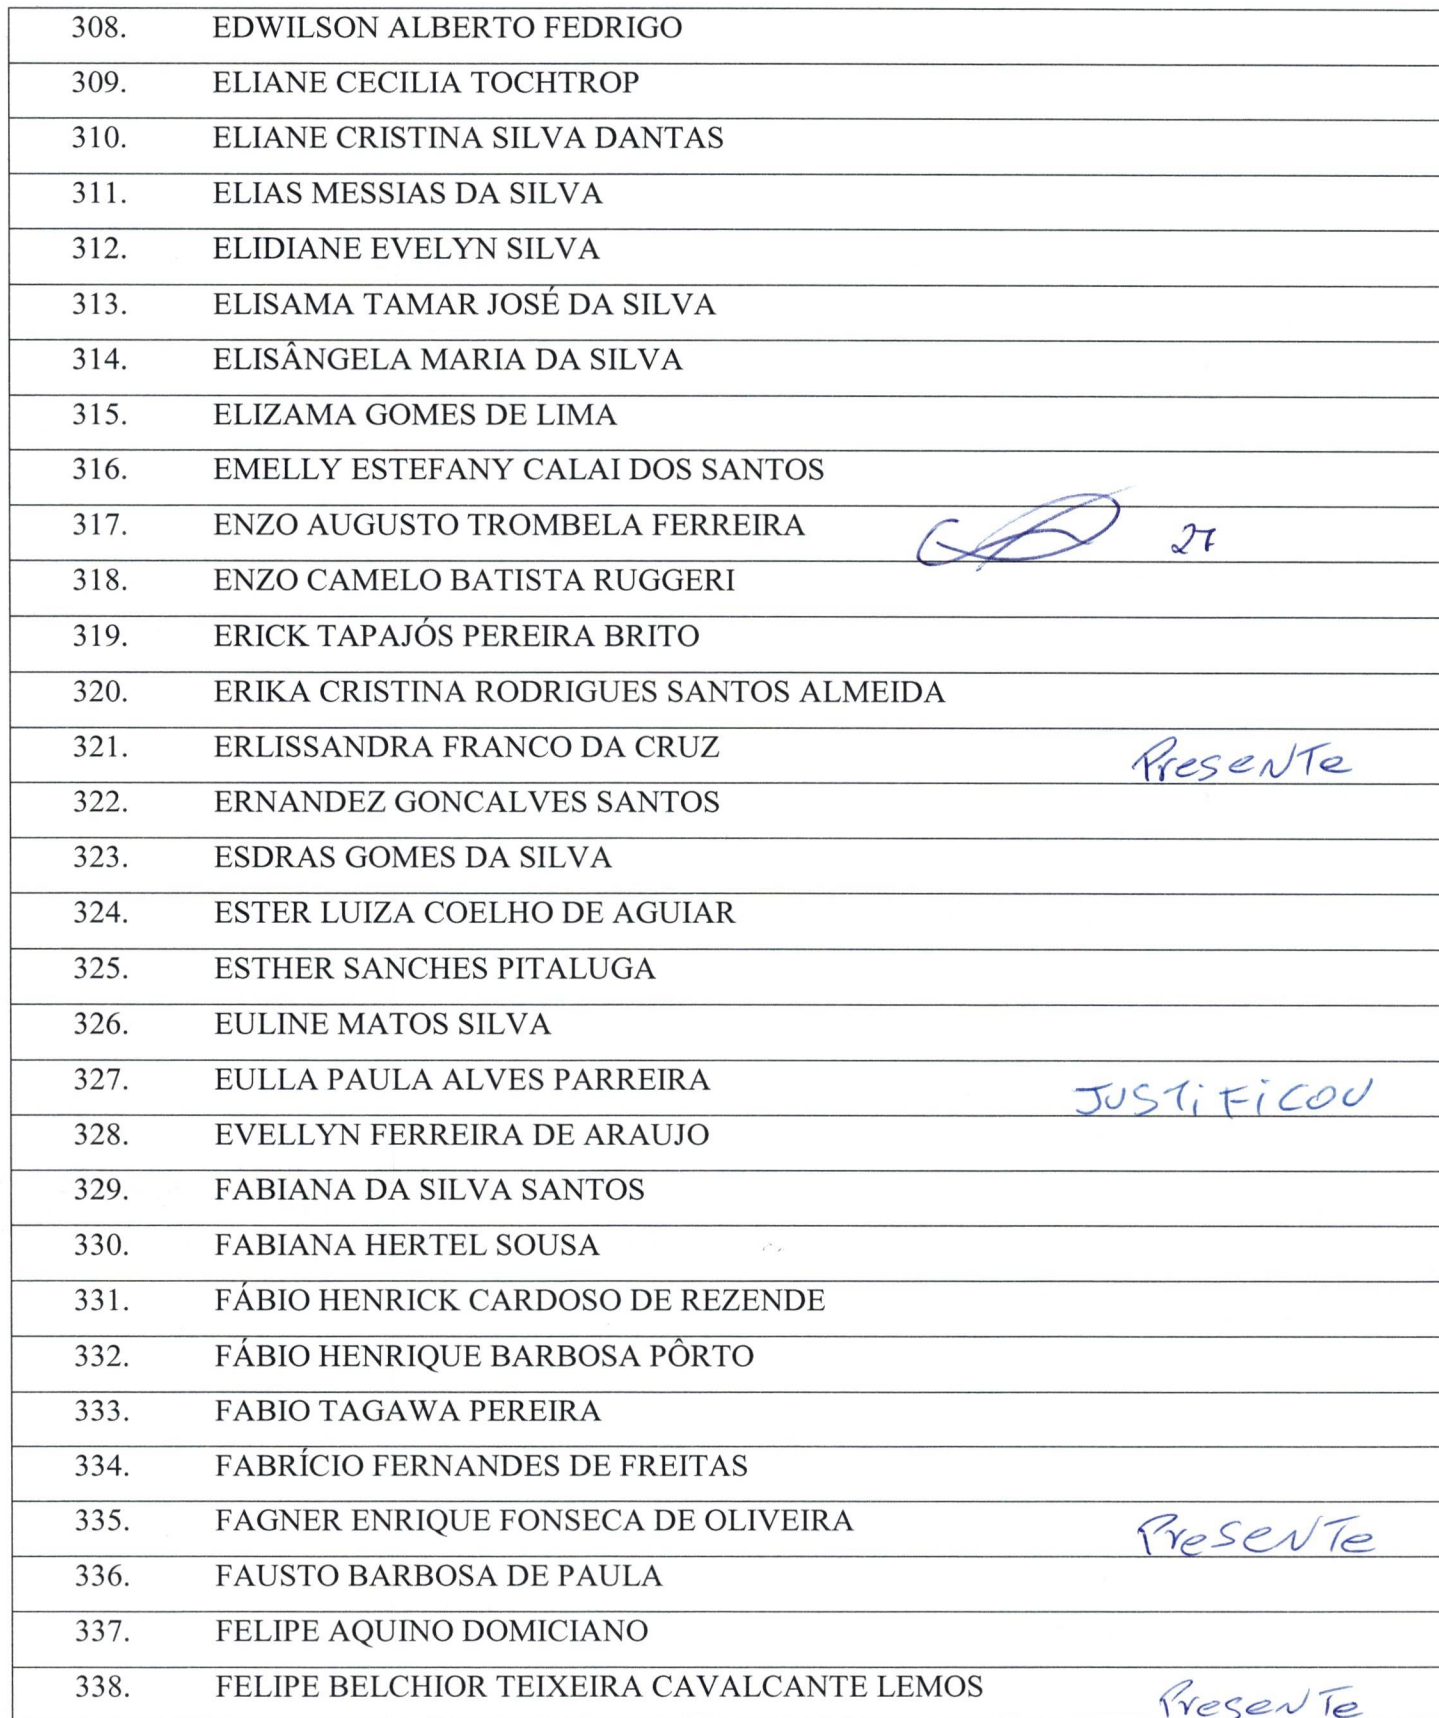 308. EDWILSON ALBERTO FEDRIGO
309. ELIANE CECILIA TOCHTROP
310. ELIANE CRISTINA SILVA DANTAS
311. ELIAS MESSIAS DA SILVA
312. ELIDIANE EVELYN SILVA
313. ELISAMA TAMAR JOSÉ DA SILVA
314. ELISÂNGELA MARIA DA SILVA
315. ELIZAMA GOMES DE LIMA
316. EMELLY ESTEFANY CALAI DOS SANTOS
317. ENZO AUGUSTO TROMBELA FERREIRA 27
318. ENZO CAMELO BATISTA RUGGERI
319. ERICK TAPAJÓS PEREIRA BRITO
320. ERIKA CRISTINA RODRIGUES SANTOS ALMEIDA
321. ERLISSANDRA FRANCO DA CRUZ Presente
322. ERNANDEZ GONCALVES SANTOS
323. ESDRAS GOMES DA SILVA
324. ESTER LUIZA COELHO DE AGUIAR
325. ESTHER SANCHES PITALUGA
326. EULINE MATOS SILVA
327. EULLA PAULA ALVES PARREIRA JUSTiFiCOU
328. EVELLYN FERREIRA DE ARAUJO
329. FABIANA DA SILVA SANTOS
330. FABIANA HERTEL SOUSA
331. FÁBIO HENRICK CARDOSO DE REZENDE
332. FÁBIO HENRIQUE BARBOSA PÔRTO
333. FABIO TAGAWA PEREIRA
334. FABRÍCIO FERNANDES DE FREITAS
335. FAGNER ENRIQUE FONSECA DE OLIVEIRA Presente
336. FAUSTO BARBOSA DE PAULA
337. FELIPE AQUINO DOMICIANO
338. FELIPE BELCHIOR TEIXEIRA CAVALCANTE LEMOS Presente